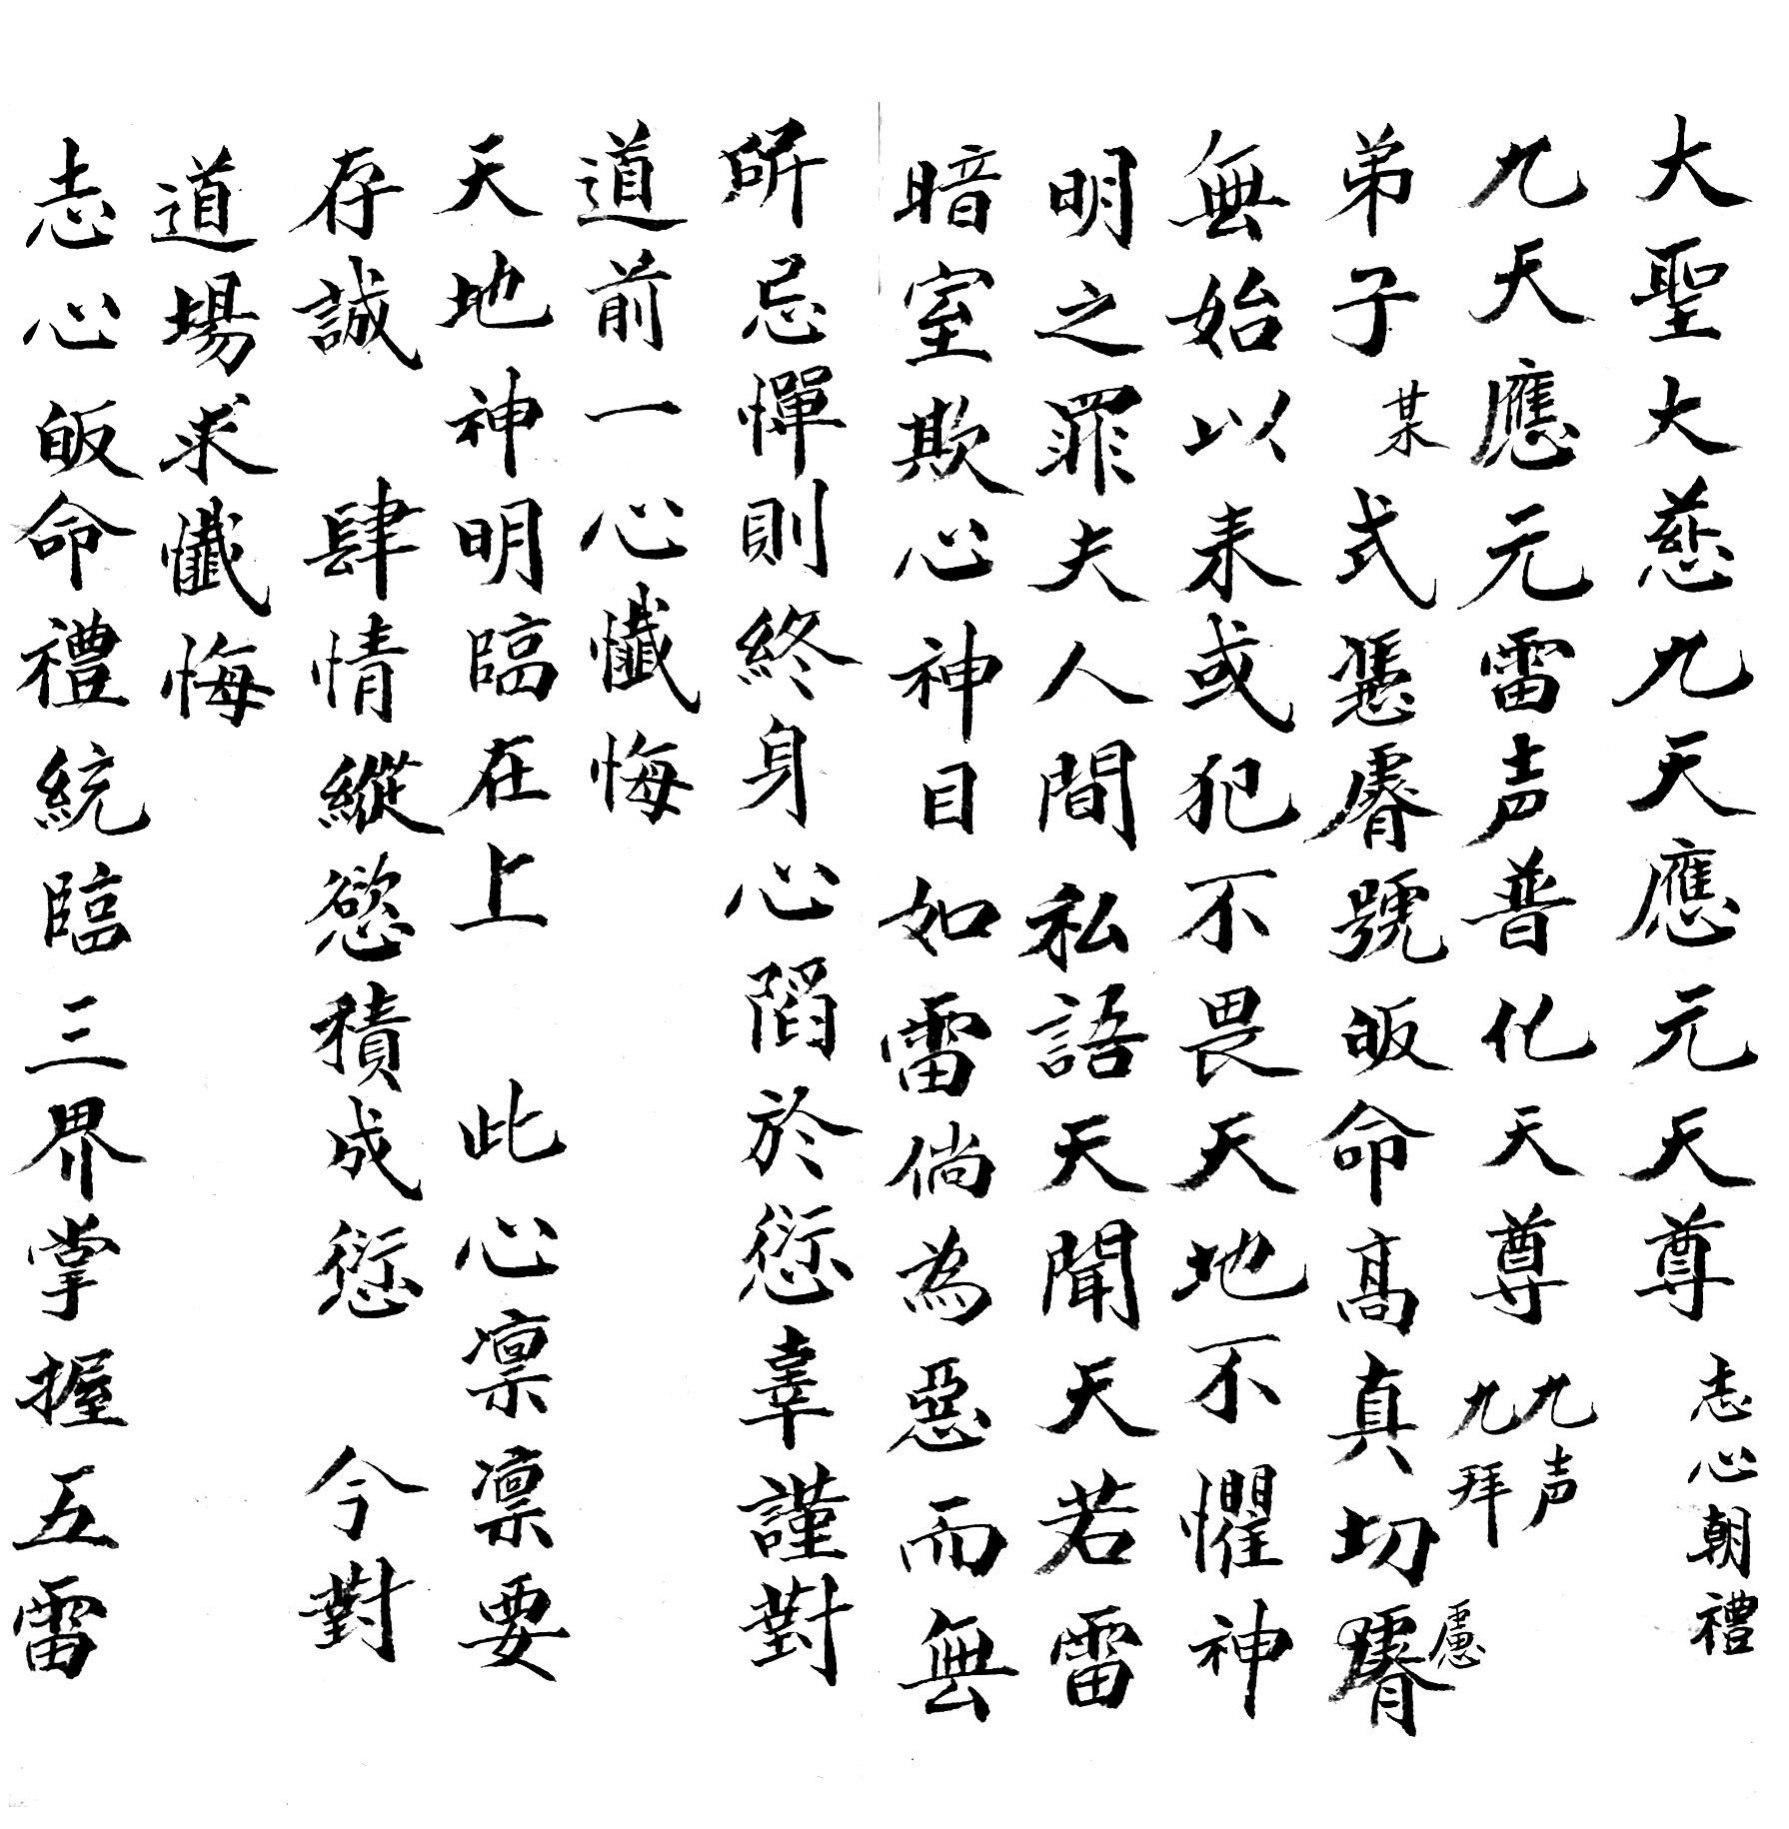 大聖大慈九天應元天尊 志心朝禮
九天應元雷声普化天尊 九声 九拜
弟子某式慿膚號皈命高真切膚慮
無始以耒或犯不畏天地不懼神
明之罪夫人間私語天聞天若雷
暗室欺心神目如雷倘為惡而無
所忌憚則終身心陷於愆辜謹對
道前一心懺悔
天地神明臨在上 此心凛凛要
存誠 肆情縱慾積成愆 今對
道場求懺悔
志心皈命禮統臨三界掌握五雷